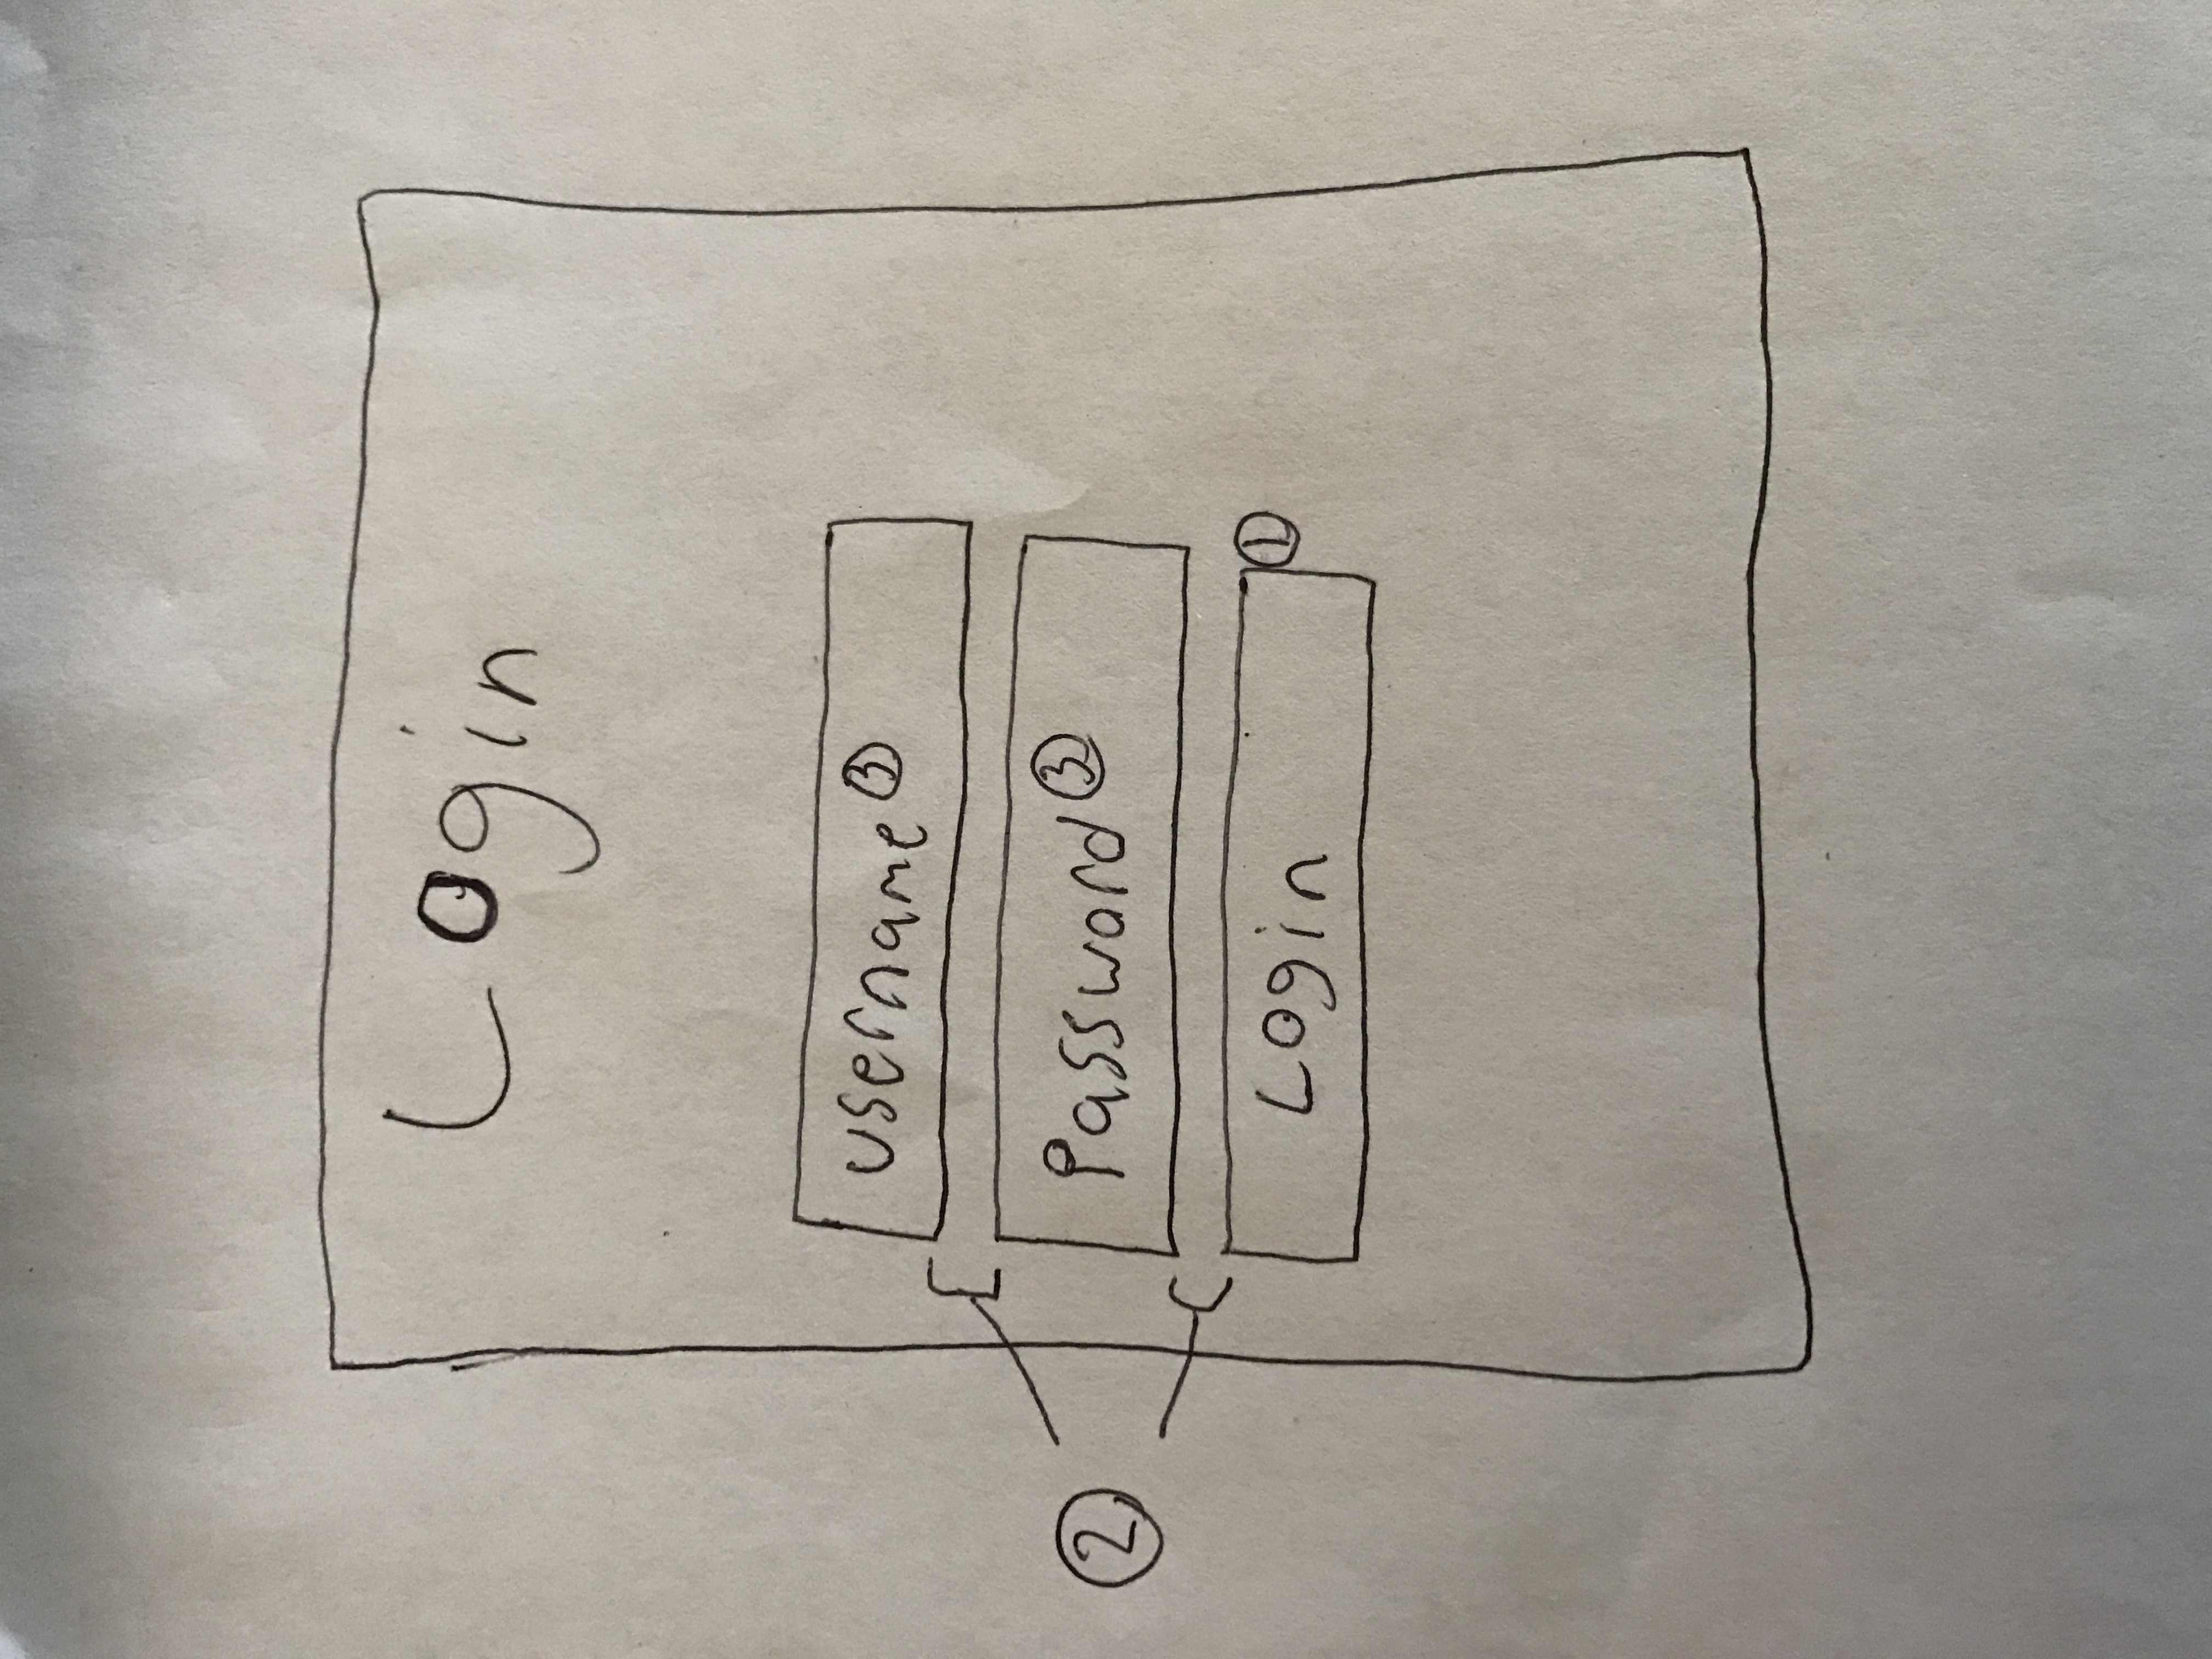 Login
username ③
Password ③
②
Login ①